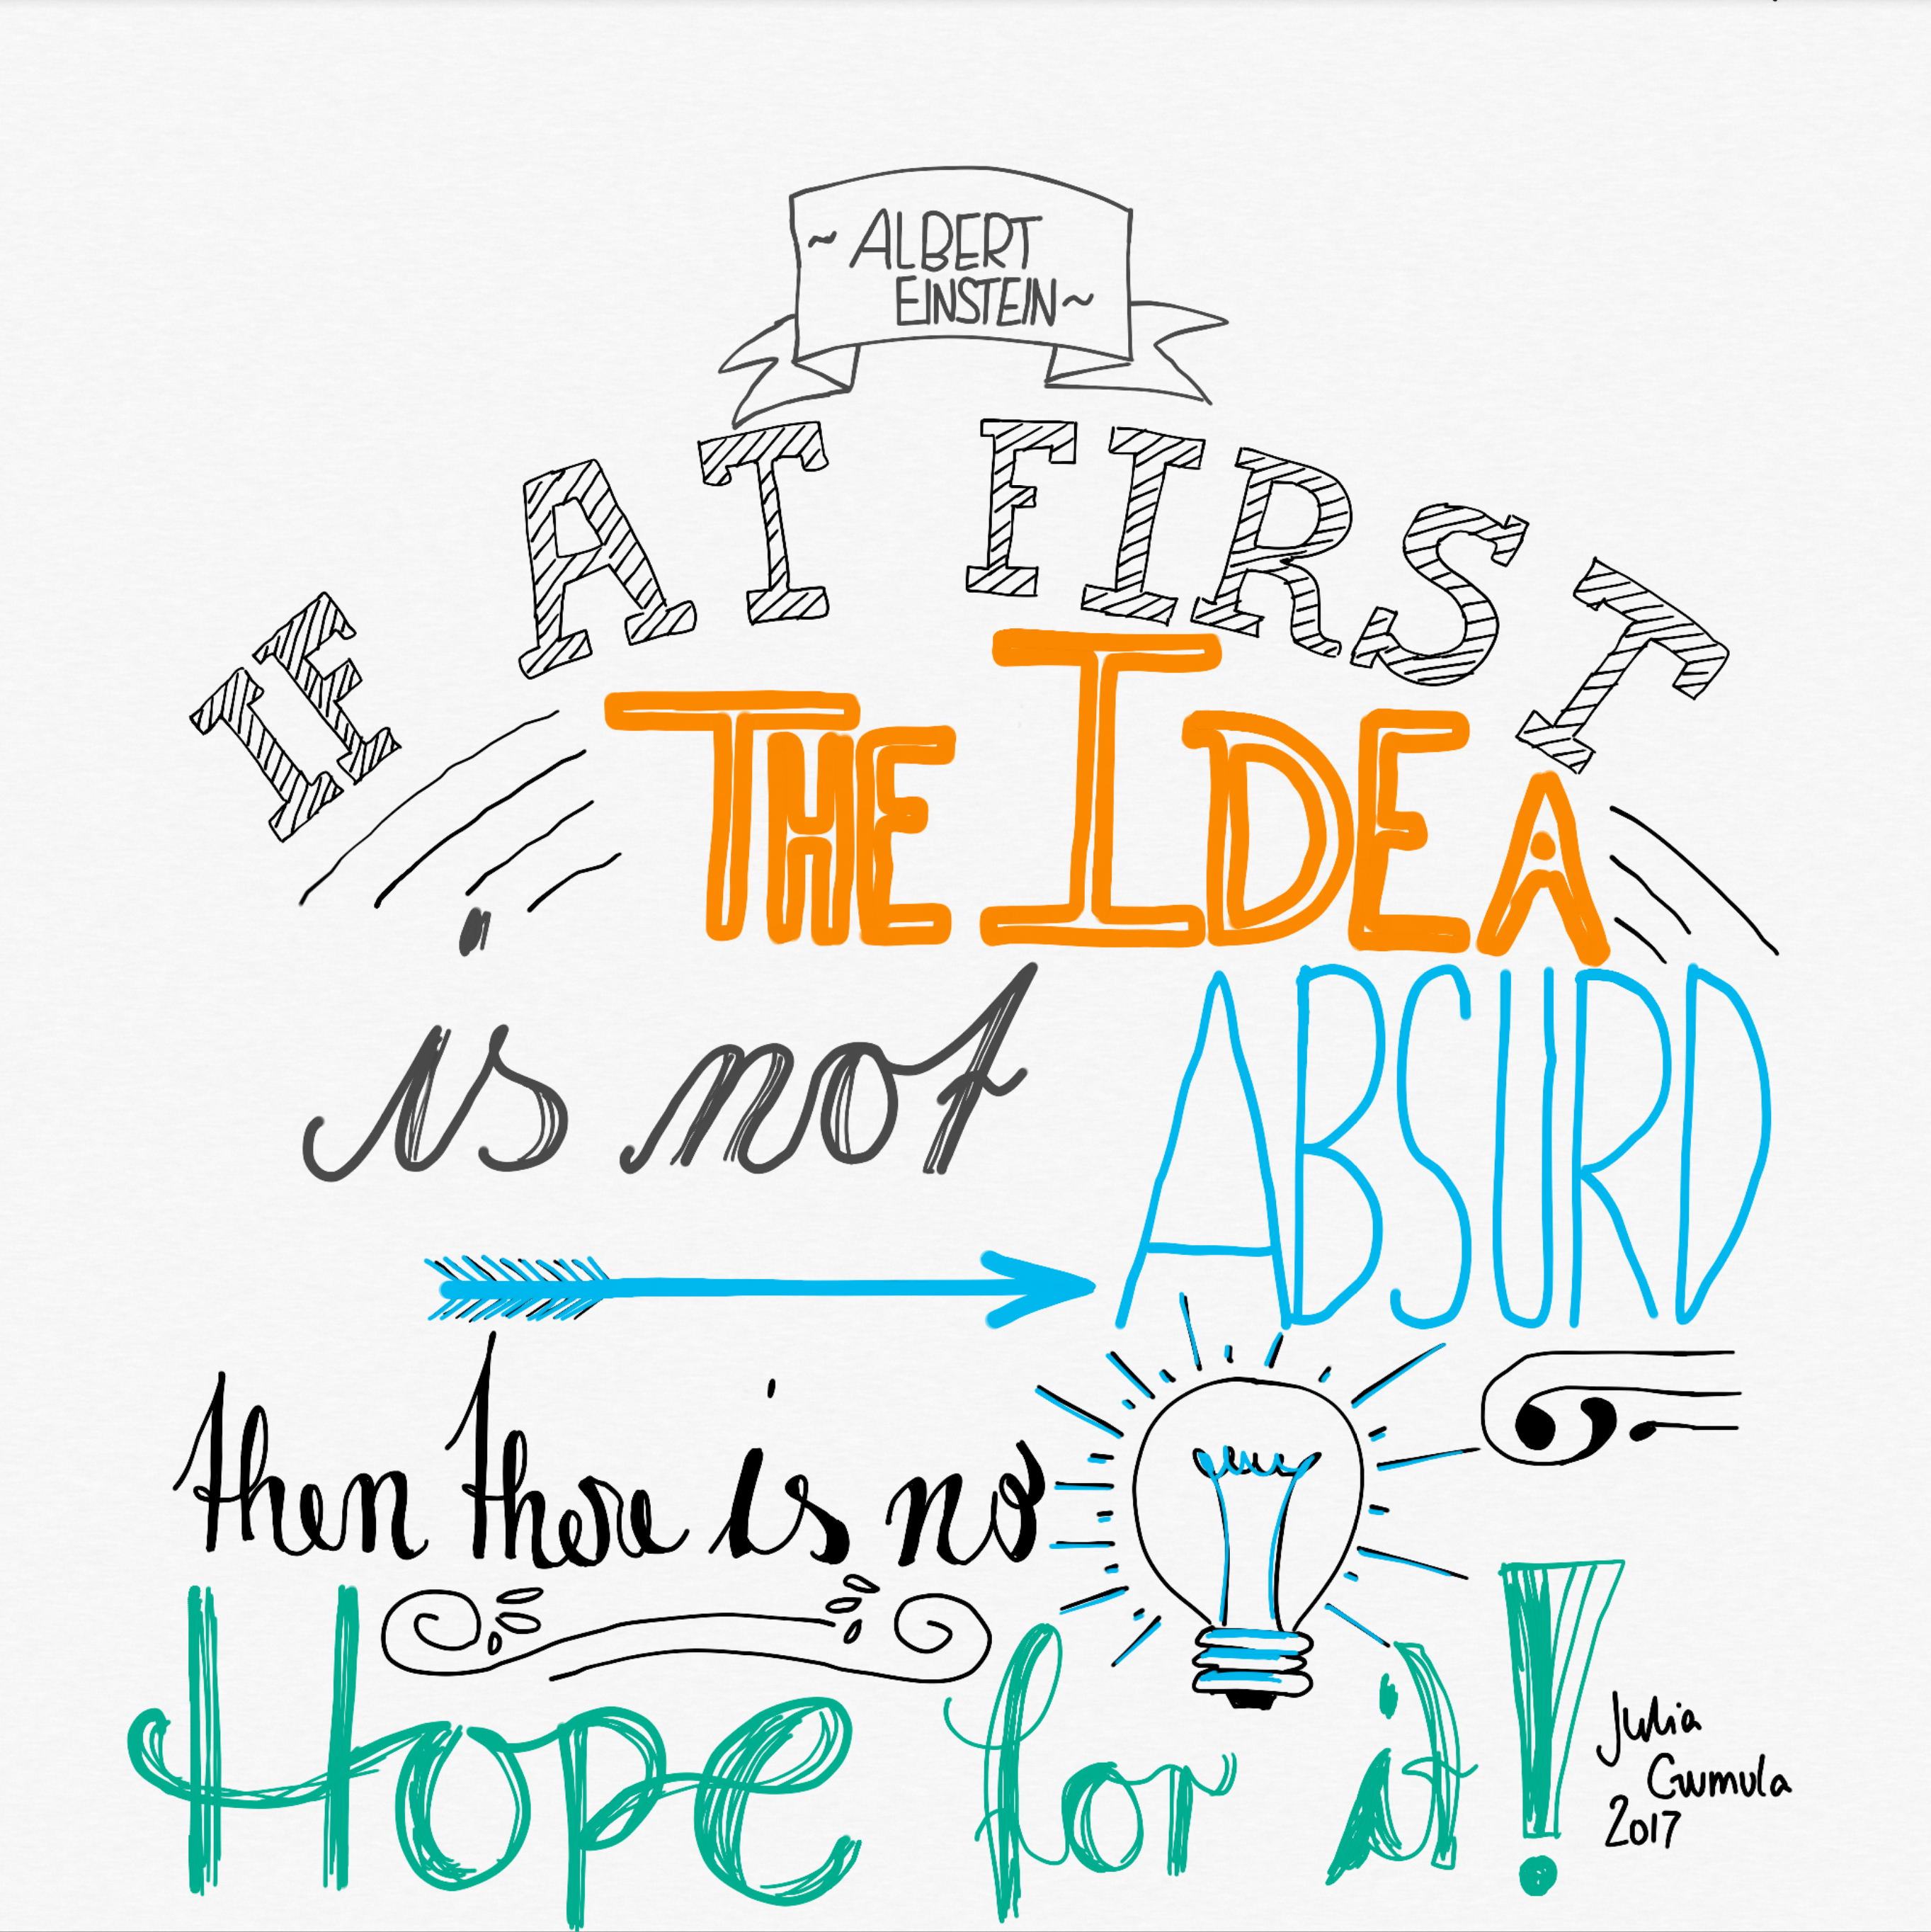 ~ALBERT
EINSTEIN~
IF AT FIRST
THE IDEA
is not
ABSURD
then there is no
Hope for it!
Julia
Gumula
2017